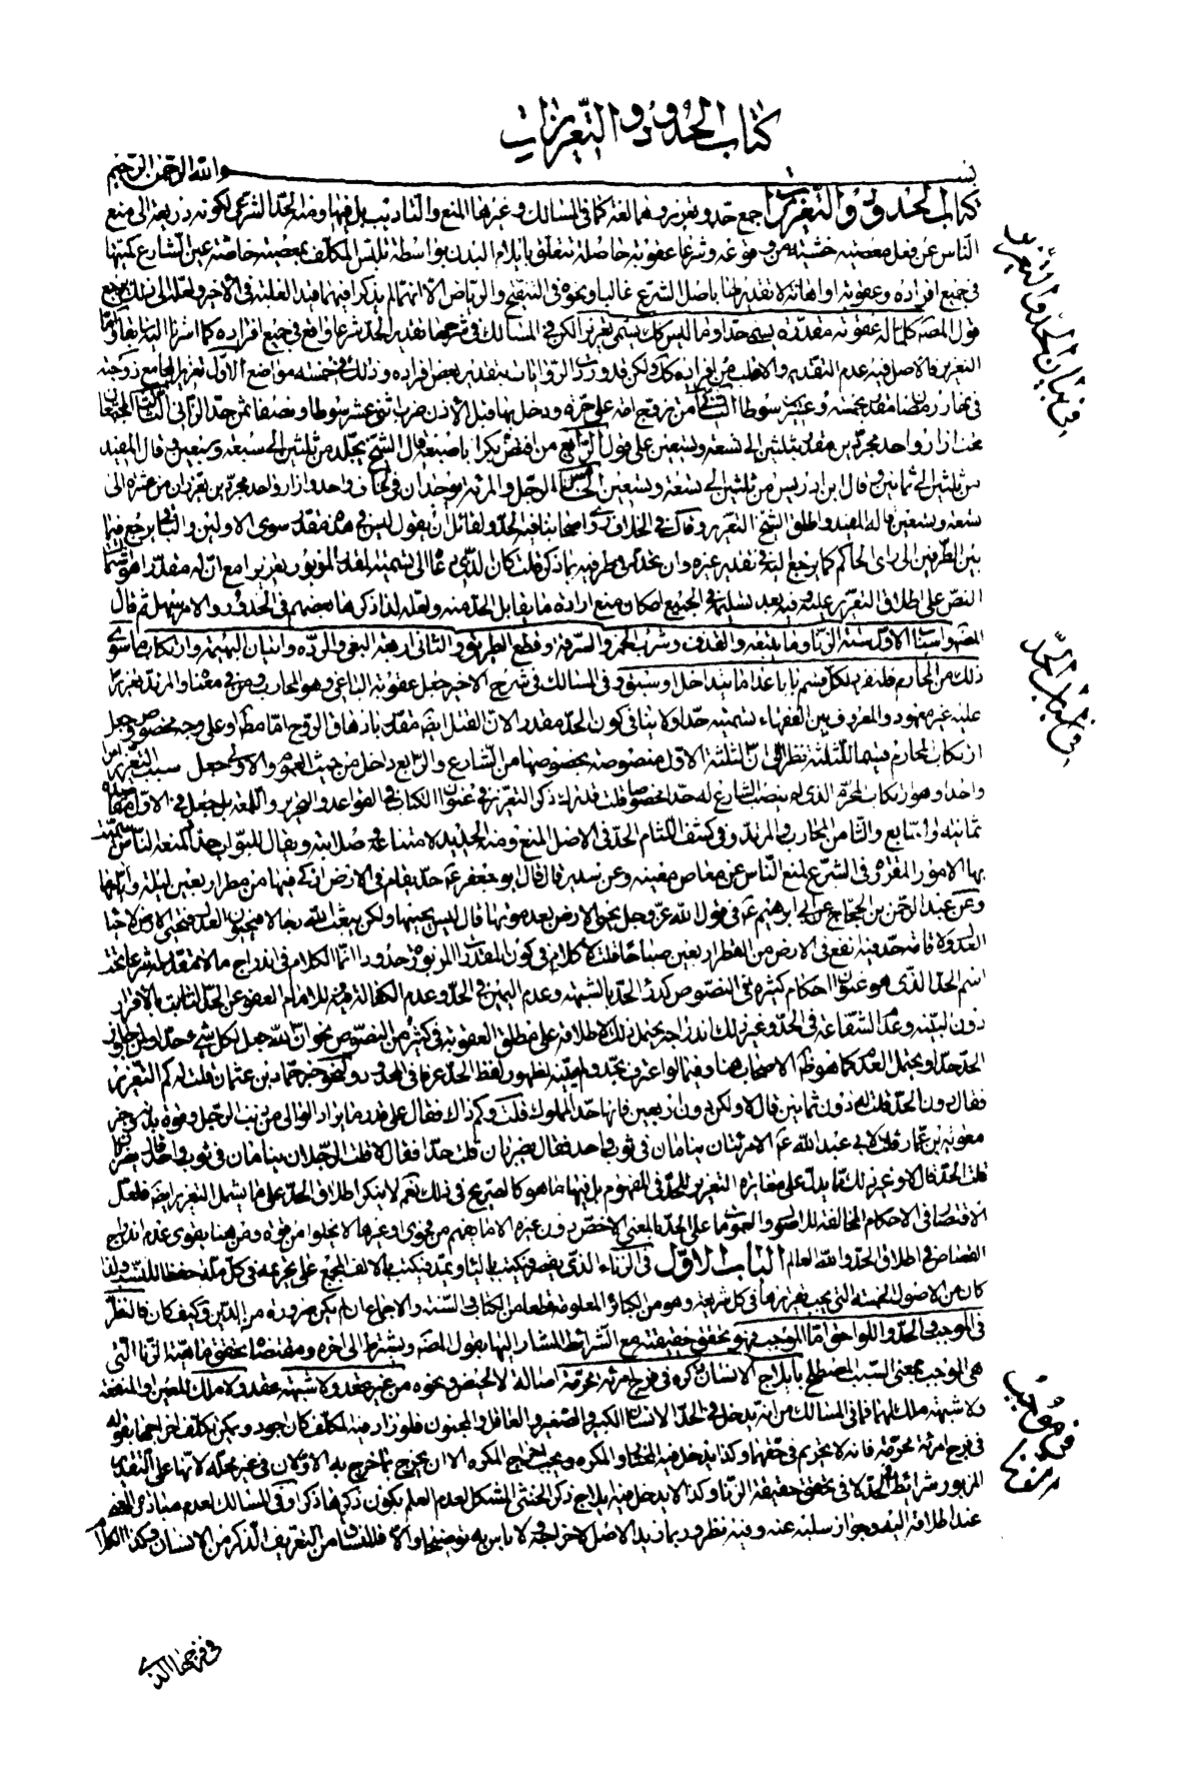 كتاب الحدود و التعزيرات
بسم الله الرحمن الرحيم
كتاب الحدود و التعزيرات جمع حد وتعزير وهما لغة كما في المسالك وغيرها المنع والتأديب بل فيها ومنه الحد الشرعي لكونه ذريعة الى منع
الناس عن فعل معصيته خشية من وقوعه وشرعا عقوبة خاصة تتعلق بايلام البدن بواسطة تلبس المكلف بمعصية خاصة عين الشارع كميتها
في جميع افراده وعقوبة او اهانة لا تقدير لها باصل الشرع غالبا ونحوه في التنقيح والرياض الا انهما لم يذكرا فيهما قيد الغلبة في الاخير ولعله الى ذلك يرجع
قول المصنف كل ماله عقوبة مقدرة يسمى حدا وما ليس كك يسمى تعزيرا لكن في المسالك في شرحها تقدير الحد شرعا واقع في جميع افراده كما اشرنا اليه سابقا واما
التعزير فالاصل فيه عدم التقدير والاغلب من افراده كك ولكن قد وردت الروايات بتقدير بعض افراده وذلك في خمسة مواضع الاول تعزير المجامع زوجته
في نهار رمضان مقدر بخمسة وعشرين سوطا الثاني من تزوج امة على حرة ودخل بها قبل الاذن ضرب اثنى عشر سوطا ونصفا ثمن حد الزاني الثالث المجتمعان
تحت ازار واحد مجردين مقدر بثلثين الى تسعة وتسعين على قول الرابع من افتض بكرا باصبعه قال الشيخ يجلد من ثلثين الى سبعة وسبعين وقال المفيد
من ثلثين الى ثمانين وقال ابن ادريس من ثلثين الى تسعة وتسعين الخامس الرجل والمرئة يوجدان في لحاف واحد وازار واحد مجردين يعزران من عشرة الى
تسعة وتسعين قاله المفيد واطلق الشيخ التعزير وقال في الخلاف روى اصحابنا فيه الحد ولقائل ان يقول ليس في هذه مقدر سوى الاولين والباقي يرجع فيما
بين الطرفين الى راى الحاكم كما يرجع اليه في تقدير غيره وان تحدد من طرفيه بما ذكر قلت كان الذي دعاه الى تسمية المقدر المزبور تعزيرا مع ان له مقدرا هو
النص على اطلاق التعزير عليه وفيه بعد تسليمه في الجميع امكان منع ارادة ما يقابل الحد منه ولعله لذا ذكرها بعضهم في الحدود والامر سهل ثم قال
المصنف واسباب الاول ستة الزنا وما يتبعه والقذف وشرب الخمر والسرقة وقطع الطريق والثاني اربعة البغي والردة واتيان البهيمة وارتكاب ما سوى
ذلك من المحارم فلنفرد لكل قسم بابا عدا ما يتداخل او سبق وفي المسالك في شرح الاخير جعل عقوبة الباغي وهو المحارب ومن في معناه والمرتد تعزيرا
عليه غير معهود والمعروف بين الفقهاء تسميته حدا ولا ينافي كون الحد مقدرا لان القتل ايضا مقدر بازهاق الروح اما مطلقا او على وجه مخصوص وجعل
ارتكاب المحارم قسيما للثلثة نظرا الى ان الثلثة الاول منصوصة بخصوصها من الشارع والرابع داخل من حيث العموم والاولى جعل سبب التعزير امرا
واحدا وهو ارتكاب المحرم الذي لم ينصب الشارع له حدا مخصوصا قلت قد ترك ذكر التعزيز في عنوان الكتاب في القواعد والتحرير واللمعة بل جعل في الاول مقاصده
ثمانية والسابع والثامن المحارب والمرتد وفي كشف اللثام الحد في الاصل المنع ومنه الحديد لامتناعه وصلابته ويقال للبواب حداد لمنعه الناس سميت
بها الامور المقررة في الشرع لمنع الناس عن معاص معينة وعن سدير قال قال ابو جعفر ع حد يقام في الارض ازكى فيها من مطر اربعين ليلة وايامها
وعن عبد الرحمن بن الحجاج عن ابي ابراهيم ع في قول الله عز وجل يحيى الارض بعد موتها قال ليس يحييها ولكن يبعث الله رجالا فيحيون العدل فتحيى الارض لاحياء
العدل ولاقامة حد فيه انفع في الارض من القطر اربعين صباحا قلت لا كلام في كون المقدرات المزبورة حدودا انما الكلام في اندراج ما لا مقدر له شرعا تحت
اسم الحد الذي هو عنوان احكام كثيرة في النصوص كدرء الحد بالشبهة وعدم اليمين في الحد وعدم الكفالة فيه وللامام العفو عن الحد الثابت بالاقرار
دون البينة وعدم الشفاعة في الحد وغير ذلك اندراجه يحتمل ذلك لاطلاقه على مطلق العقوبة في كثير من النصوص نحو ان الله جعل لكل شيء حدا ولمن جاوز
الحد حدا ويحتمل العدم كما هو ظاهر الاصحاب هنا وفيما لو اعترف بحد ولم يبينه لظهور لفظ الحد عرفا في المحدود ولصحيح حماد بن عثمان قلت له كم التعزير
فقال دون الحد قلت له دون ثمانين قال لا ولكن دون اربعين فانها حد المملوك قلت وكم ذاك فقال على قدر ما يراه الوالى من ذنب الرجل وقوة بدنه وخبر
معوية بن عمار قلت لابي عبد الله ع المرئتان ينامان في ثوب واحد فقال يضربان قلت حدا فقال لا قلت الرجلان ينامان في ثوب واحد قال يضربان قال
قلت الحد قال لا وغير ذلك مما يدل على مغايرة التعزير للحد في المفهوم بل فيها ما هو كالصريح في ذلك نعم لا ينكر اطلاق الحد على ما يشمل التعزير ايضا فلعل
الاقتصار في الاحكام المخالفة للاصول والعمومات على الحد بالمعنى الاخص دون غيره الا ما يفهم من فحوى او غيرها لا يخلوا من قوة ومن هنا يقوى عدم اندراج
القصاص في اطلاق الحد والله العالم الباب الاول في الزناء الذي يقصر فيكتب بالياء ويمد فيكتب بالالف المجمع على تحريمه في كل ملة حفظا للنسب ولذا
كان من الاصول الخمسة التي يجب تقريرها في كل شريعة وهو من الكبائر المعلومة قطعا من الكتاب والسنة والاجماع ان لم يكن ضرورة من الدين وكيف كان فالنظر
في الموجب والحد واللواحق اما الموجب فهو يتحقق حقيقته مع الشرائط المشار اليها بقول المصنف ويشترط الى اخره ومقتضاه تحقق ماهية الزنا التي
هي الموجب بمعنى السبب المصطلح بايلاج الانسان ذكره في فرج امرئة محرمة اصالة لا لحيض ونحوه من غير عقد ولا شبهة عقد ولا ملك للعين او المنفعة
ولا شبهة ملك لهما فما في المسالك من انه يدخل في الحد الانسان الكبير والصغير والعاقل والمجنون فلو زاد فيه المكلف كان اجود ويمكن تكلف اخراجهما بقوله
في فرج امرئة محرمة فانه لا تحريم في حقهما وكذا يدخل فيه المختار والمكره ويجب اخراج المكره الا ان يخرج بما خرج به الاولان في غير محله لانها على التقدير
المزبور شرائط للحد لا في تحقق حقيقة الزنا وكذا لا يدخل فيه ايلاج ذكر الخنثى المشكل لعدم العلم بكون ذكرها ذكرا وفي المسالك لعدم صبادى الفهم
عند اطلاقه اليه وجواز سلبه عنه وفيه نظر وربما زيد الاصل لاخراجه ولا باس به توضيحا والا فالمنساق من التعريف الذكر من الانسان وكذا الكلام
في فرجها الذي
في بيان الحد والتعزير
في اسباب الحد
في موجب الزنا